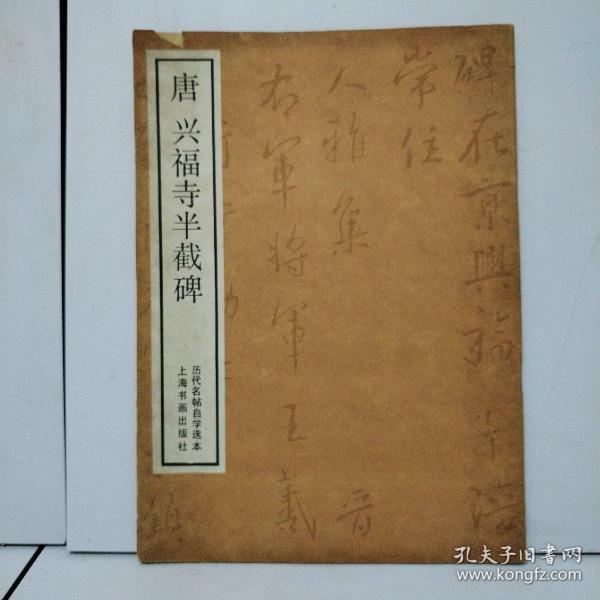 唐 兴福寺半截碑
历代名帖自学选本
上海书画出版社
碑在京興福寺陪
常住
人雅集 晋
右軍將軍王羲
孔夫子旧书网
www.kongfz.com